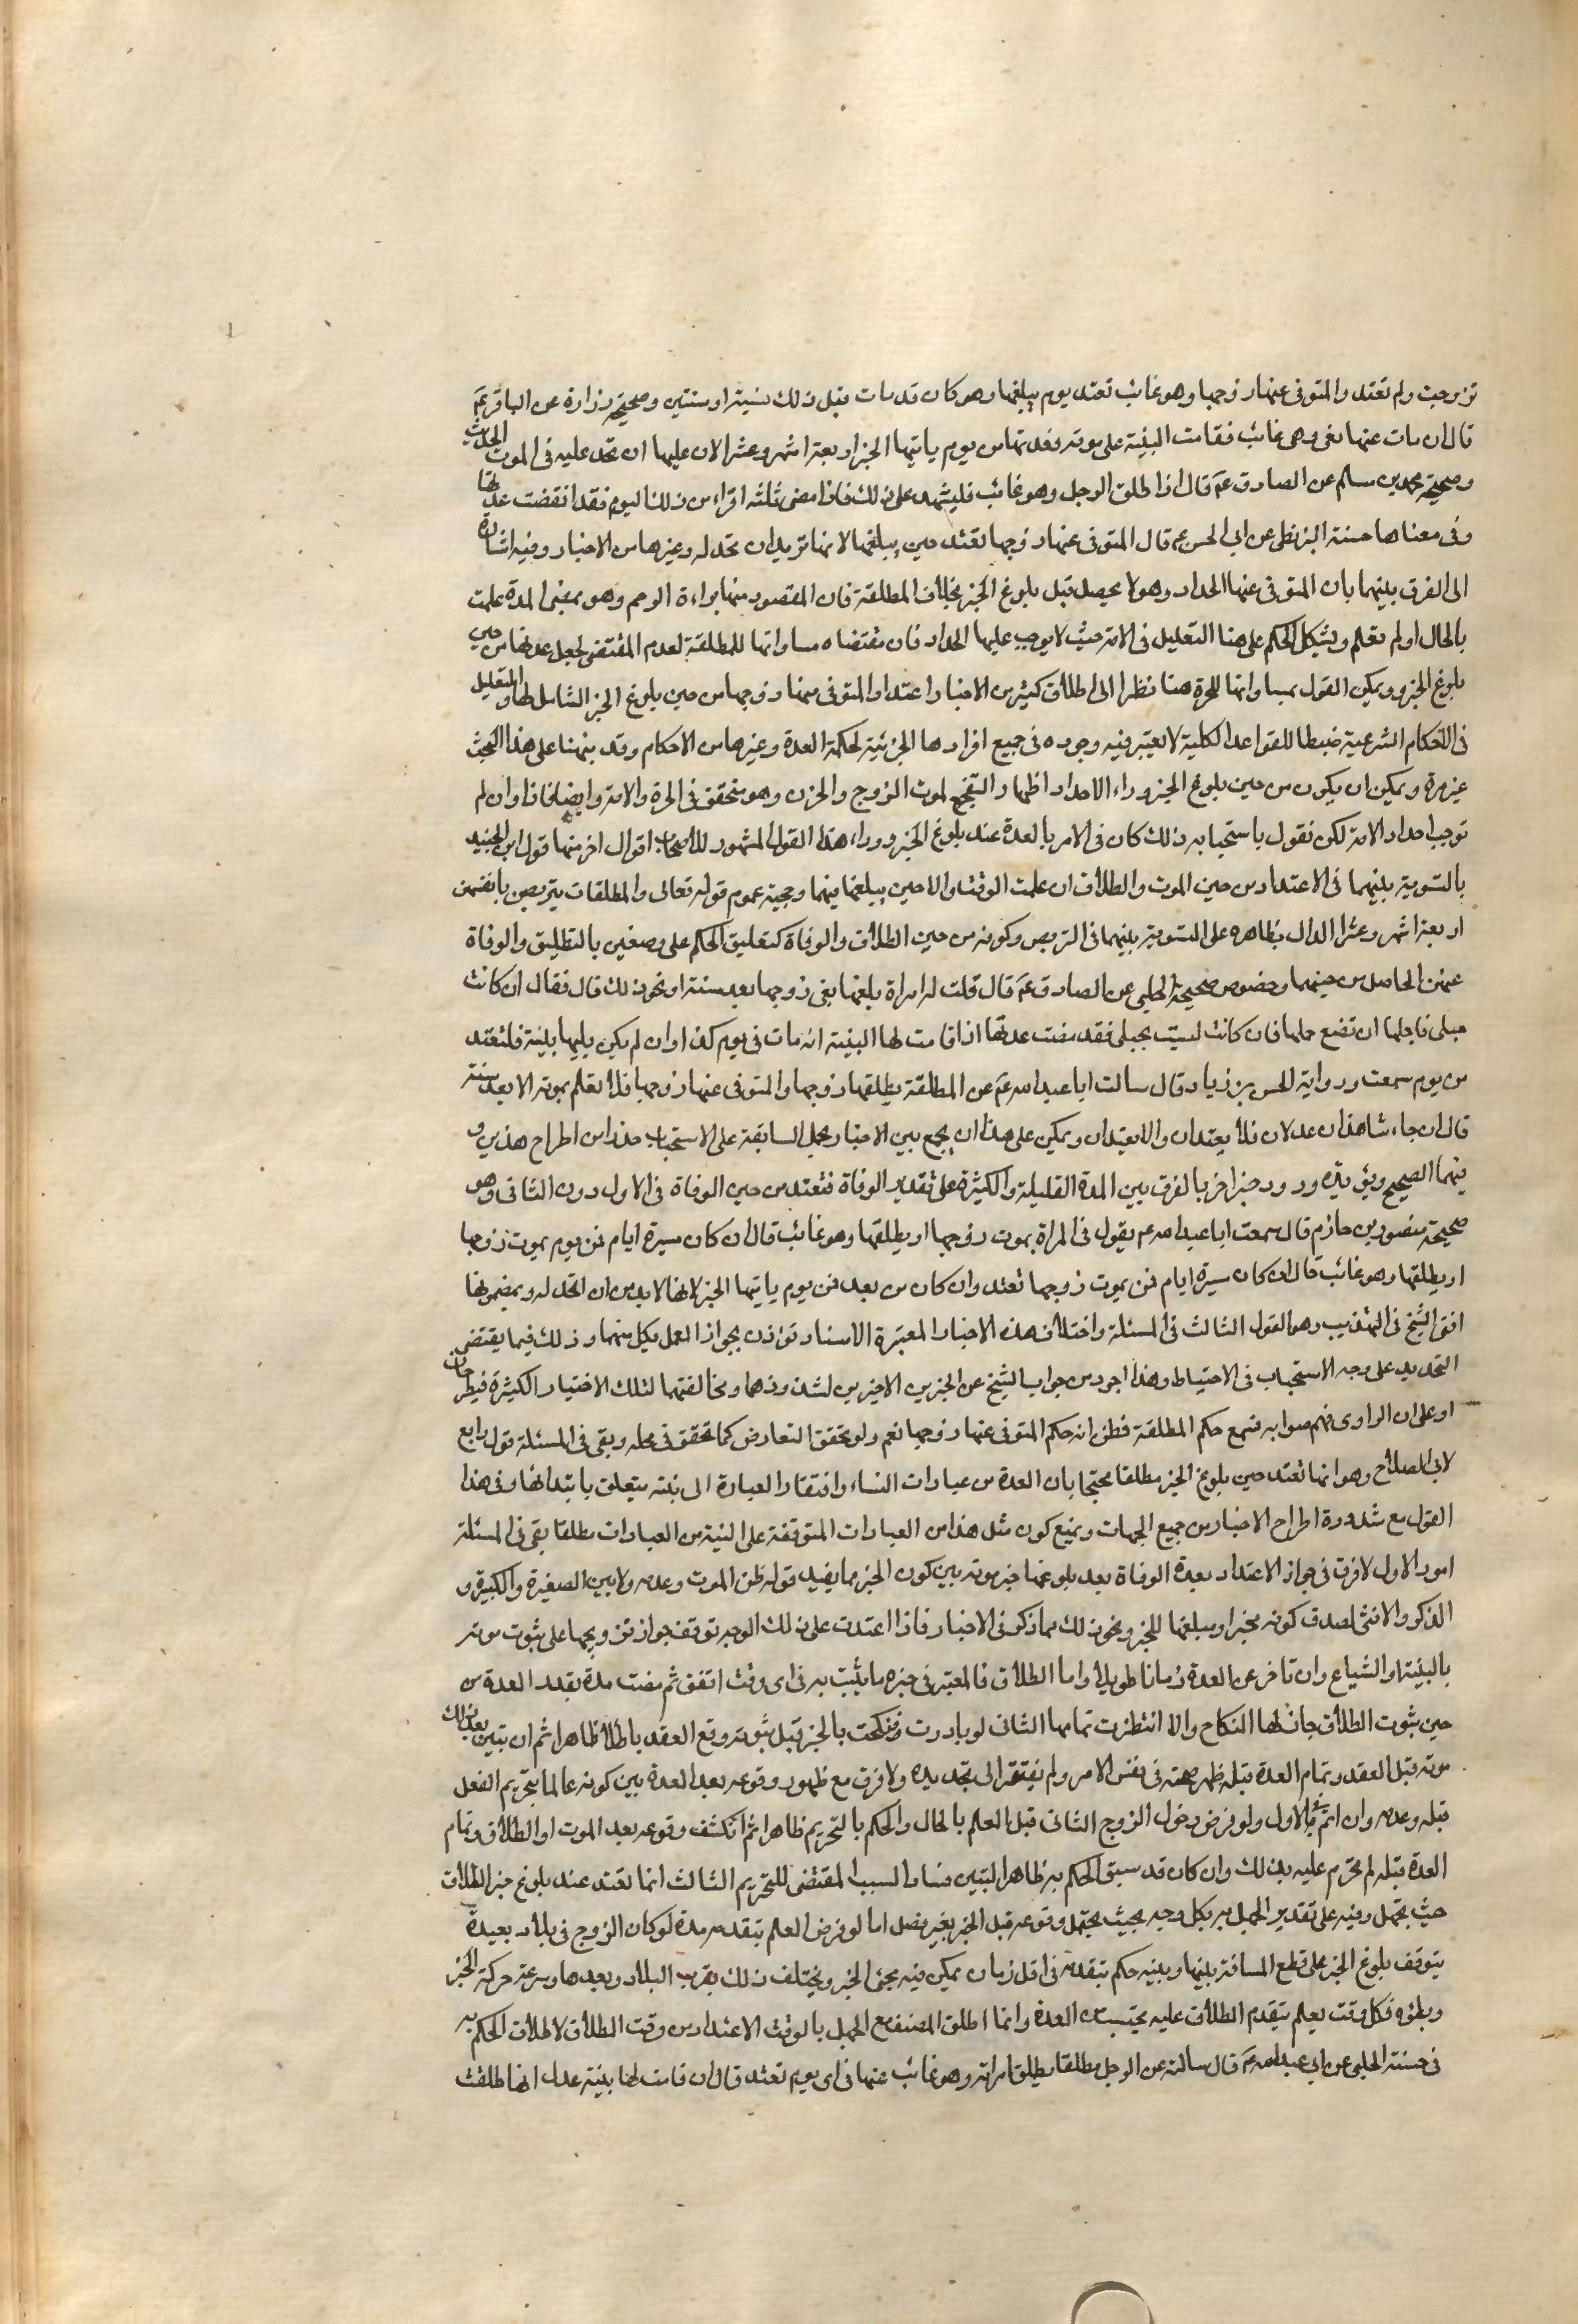 تزوجت ولم تعتد والمتوفى عنها زوجها وهو غائب تعتد يوم يبلغها وهو كان قد مات قبل ذلك بسنة او سنتين وصحيحة زرارة عن الباقر عم
قال ان مات عنها يعنى وهو غائب فقامت البينة على موته فعدتها من يوم ياتيها الخبر اربعة اشهر وعشرا لان عليها ان تحد عليه فى الموت الحديث
وصحيحة محمد بن مسلم عن الصادق عم قال اذا طلق الرجل وهو غائب فليشهد على ذلك فاذا مضى ثلثة اقراء من ذلك اليوم فقد انقضت عدتها
وفى معناها حسنة البزنطى عن ابى الحسن عم قال المتوفى عنها زوجها تعتد حين يبلغها لانها تريد ان تحد له وغيرها من الاخبار وفيه اشارة
الى الفرق بينهما بان المتوفى عنها الحداد وهو لا يحصل قبل بلوغ الخبر بخلاف المطلقة فان المقصود منها براءة الرحم وهو بمضى المدة علمت
بالحال او لم تعلم ويشكل الحكم على هذا التعليل فى الامة حيث لا يوجب عليها الحداد فان مقتضاه مساواتها للمطلقة لعدم المقتضى لجعل عدتها من حين
بلوغ الخبر ويمكن القول بمساواتها للحرة هنا نظرا الى اطلاق كثير من الاخبار اعتداد المتوفى عنها زوجها من حين بلوغ الخبر الشامل لها والتعليل
فى الاحكام الشرعية ضبطا للقواعد الكلية لا يعتبر فيه وجوده فى جميع افرادها الجزئية لحكمة العدة وغيرها من الاحكام وقد نبهنا على هذا البحث
غير مرة ويمكن ان يكون من حين بلوغ الخبر وراء الاحداد اظهار التفجع لموت الزوج والحزن وهو متحقق فى الحرة والامة وايضا فانا وان لم
نوجب احداد الامة لكن نقول باستحبابه ذلك كان فى الامر بالعدة عند بلوغ الخبر ووراء هذا القول المشهور للاصحاب اقوال اخر منها قول ابن الجنيد
بالتسوية بينهما فى الاعتداد من حين الموت والطلاق ان علمت الوقت والا حين يبلغها فيهما وحجته عموم قوله تعالى والمطلقات يتربصن بانفسهن
اربعة اشهر وعشرا الدال بظاهره على التسوية بينهما فى التربص وكونه من حين الطلاق والوفاة كتعليق الحكم على وصفين بالتطليق والوفاة
عنهن الحاصل من حينهما وخصوص صحيحة الحلبى عن الصادق عم قال قلت له امراة بلغها نعى زوجها بعد سنة او نحو ذلك قال فقال ان كانت
حبلى فاجلها ان تضع حملها فان كانت ليست بحبلى فقد مضت عدتها اذا قامت لها البينة انه مات فى يوم كذا وان لم يكن لها بينة فلتعتد
من يوم سمعت ورواية الحسن بن زياد قال سالت ابا عبد الله عم عن المطلقة يطلقها زوجها والمتوفى عنها زوجها فلا تعلم بموته الا بعد سنة
قال ان جاء شاهدان عدلان فلا يعتدان والا يعتدان ويمكن على هذا ان يجمع بين الاخبار بحمل السابقة على الاستحباب حذرا من اطراح هذين و
فيهما الصحيح ويؤيده ورود خبر اخر بالفرق بين المدة القليلة والكثيرة على تقدير الوفاة فتعتد من حين الوفاة فى الاول دون الثانى وهو
صحيحة منصور بن حازم قال سمعت ابا عبد الله عم يقول فى المراة يموت زوجها او يطلقها وهو غائب قال ان كان مسيرة ايام فمن يوم يموت زوجها
او يطلقها وهو غائب قال ان كان مسيرة ايام فمن يموت زوجها تعتد وان كان من بعد فمن يوم ياتيها الخبر لانها لا بد من ان تحد له وبمضمونها
افتى الشيخ فى التهذيب وهو القول الثالث فى المسئلة واختلاف هذه الاخبار المعتبرة الاسناد تؤذن بجواز العمل بكل منهما وذلك فيما يقتضى
التحديد على وجه الاستحباب فى الاحتياط وهذا اجود من جواب الشيخ عن الخبرين الاخيرين لشذوذهما ومخالفتهما لتلك الاخبار الكثيرة فيطرحان
او على ان الراوى فهم صوابه فسمع حكم المطلقة فظن انه حكم المتوفى عنها زوجها نعم ولو تحقق التعارض كما تحقق فى محله وبقى فى المسئلة قول رابع
لابى الصلاح وهو انها تعتد حين بلوغ الخبر مطلقا محتجا بان العدة من عبادات النساء وافتقار العبادة الى نية يتعلق بابتدائها وفى هذا
القول مع شذوذه اطراح الاخبار من جميع الجهات ويمنع كون مثل هذا من العبادات المتوقفة على النية من العبادات مطلقا بقى فى المسئلة
امور الاول لا فرق فى جواز الاعتداد بعدة الوفاة بعد بلوغها خبر موته بين كون الخبر مما يفيد قوله ظن الموت وعدمه ولا بين الصغيرة والكبيرة و
الذكر والانثى لصدق كونه مخبرا ومبلغها للخبر ونحو ذلك مما ذكر فى الاخبار فاذا اعتدت على ذلك الوجه توقف جواز تزويجها على ثبوت موته
بالبينة او الشياع وان تاخر عن العدة زمانا طويلا واما الطلاق فالمعتبر فى خبره ما يثبت به فى اى وقت اتفق ثم مضت مدة بقدر العدة من
حين ثبوت الطلاق جاز لها النكاح والا انتظرت تمامها الثانى لو بادرت فنكحت بالخبر قبل ثبوته وقع العقد باطلا ظاهرا ثم ان تبين بعد ذلك
موته قبل العقد وتمام العدة قبله ظهر صحته فى نفس الامر ولم يفتقر الى تجديده ولا فرق مع ظهور وقوعه بعد العدة بين كونه عالما بتحريم الفعل
قبله وعدمه وان اثم فى الاول ولو فرض دخول الزوج الثانى قبل العلم بالحال والحكم بالتحريم ظاهرا ثم انكشف وقوعه بعد الموت او الطلاق وتمام
العدة قبله لم تحرم عليه بذلك وان كان قد سبق الحكم به ظاهرا لتبين فساد السبب المقتضى للتحريم الثالث انما تعتد عند بلوغ خبر الطلاق
حيث يجهل وقته على تقدير الجهل به بكل وجه بحيث يحتمل وقوعه قبل الخبر بغير فصل اما لو فرض العلم بتقدمه مدة لو كان الزوج فى بلاد بعيدة
يتوقف بلوغ الخبر على قطع المسافة بينها وبينه حكم بتقدمه فى اقل زمان يمكن فيه مجئ الخبر ويختلف ذلك بقرب البلاد وبعدها وسرعة حركة الخبر
وبطؤه فكل وقت يعلم بتقدم الطلاق عليه يحتسب من العدة وانما اطلق المصنف مع الجهل بالوقت الاعتداد من وقت الطلاق لاطلاق الحكم به
فى حسنة الحلبى عن ابى عبد الله عم قال سالته عن الرجل مطلقا يطلق امراته وهو غائب عنها فى اى يوم تعتد قال ان قامت لها بينة عدل انها طلقت